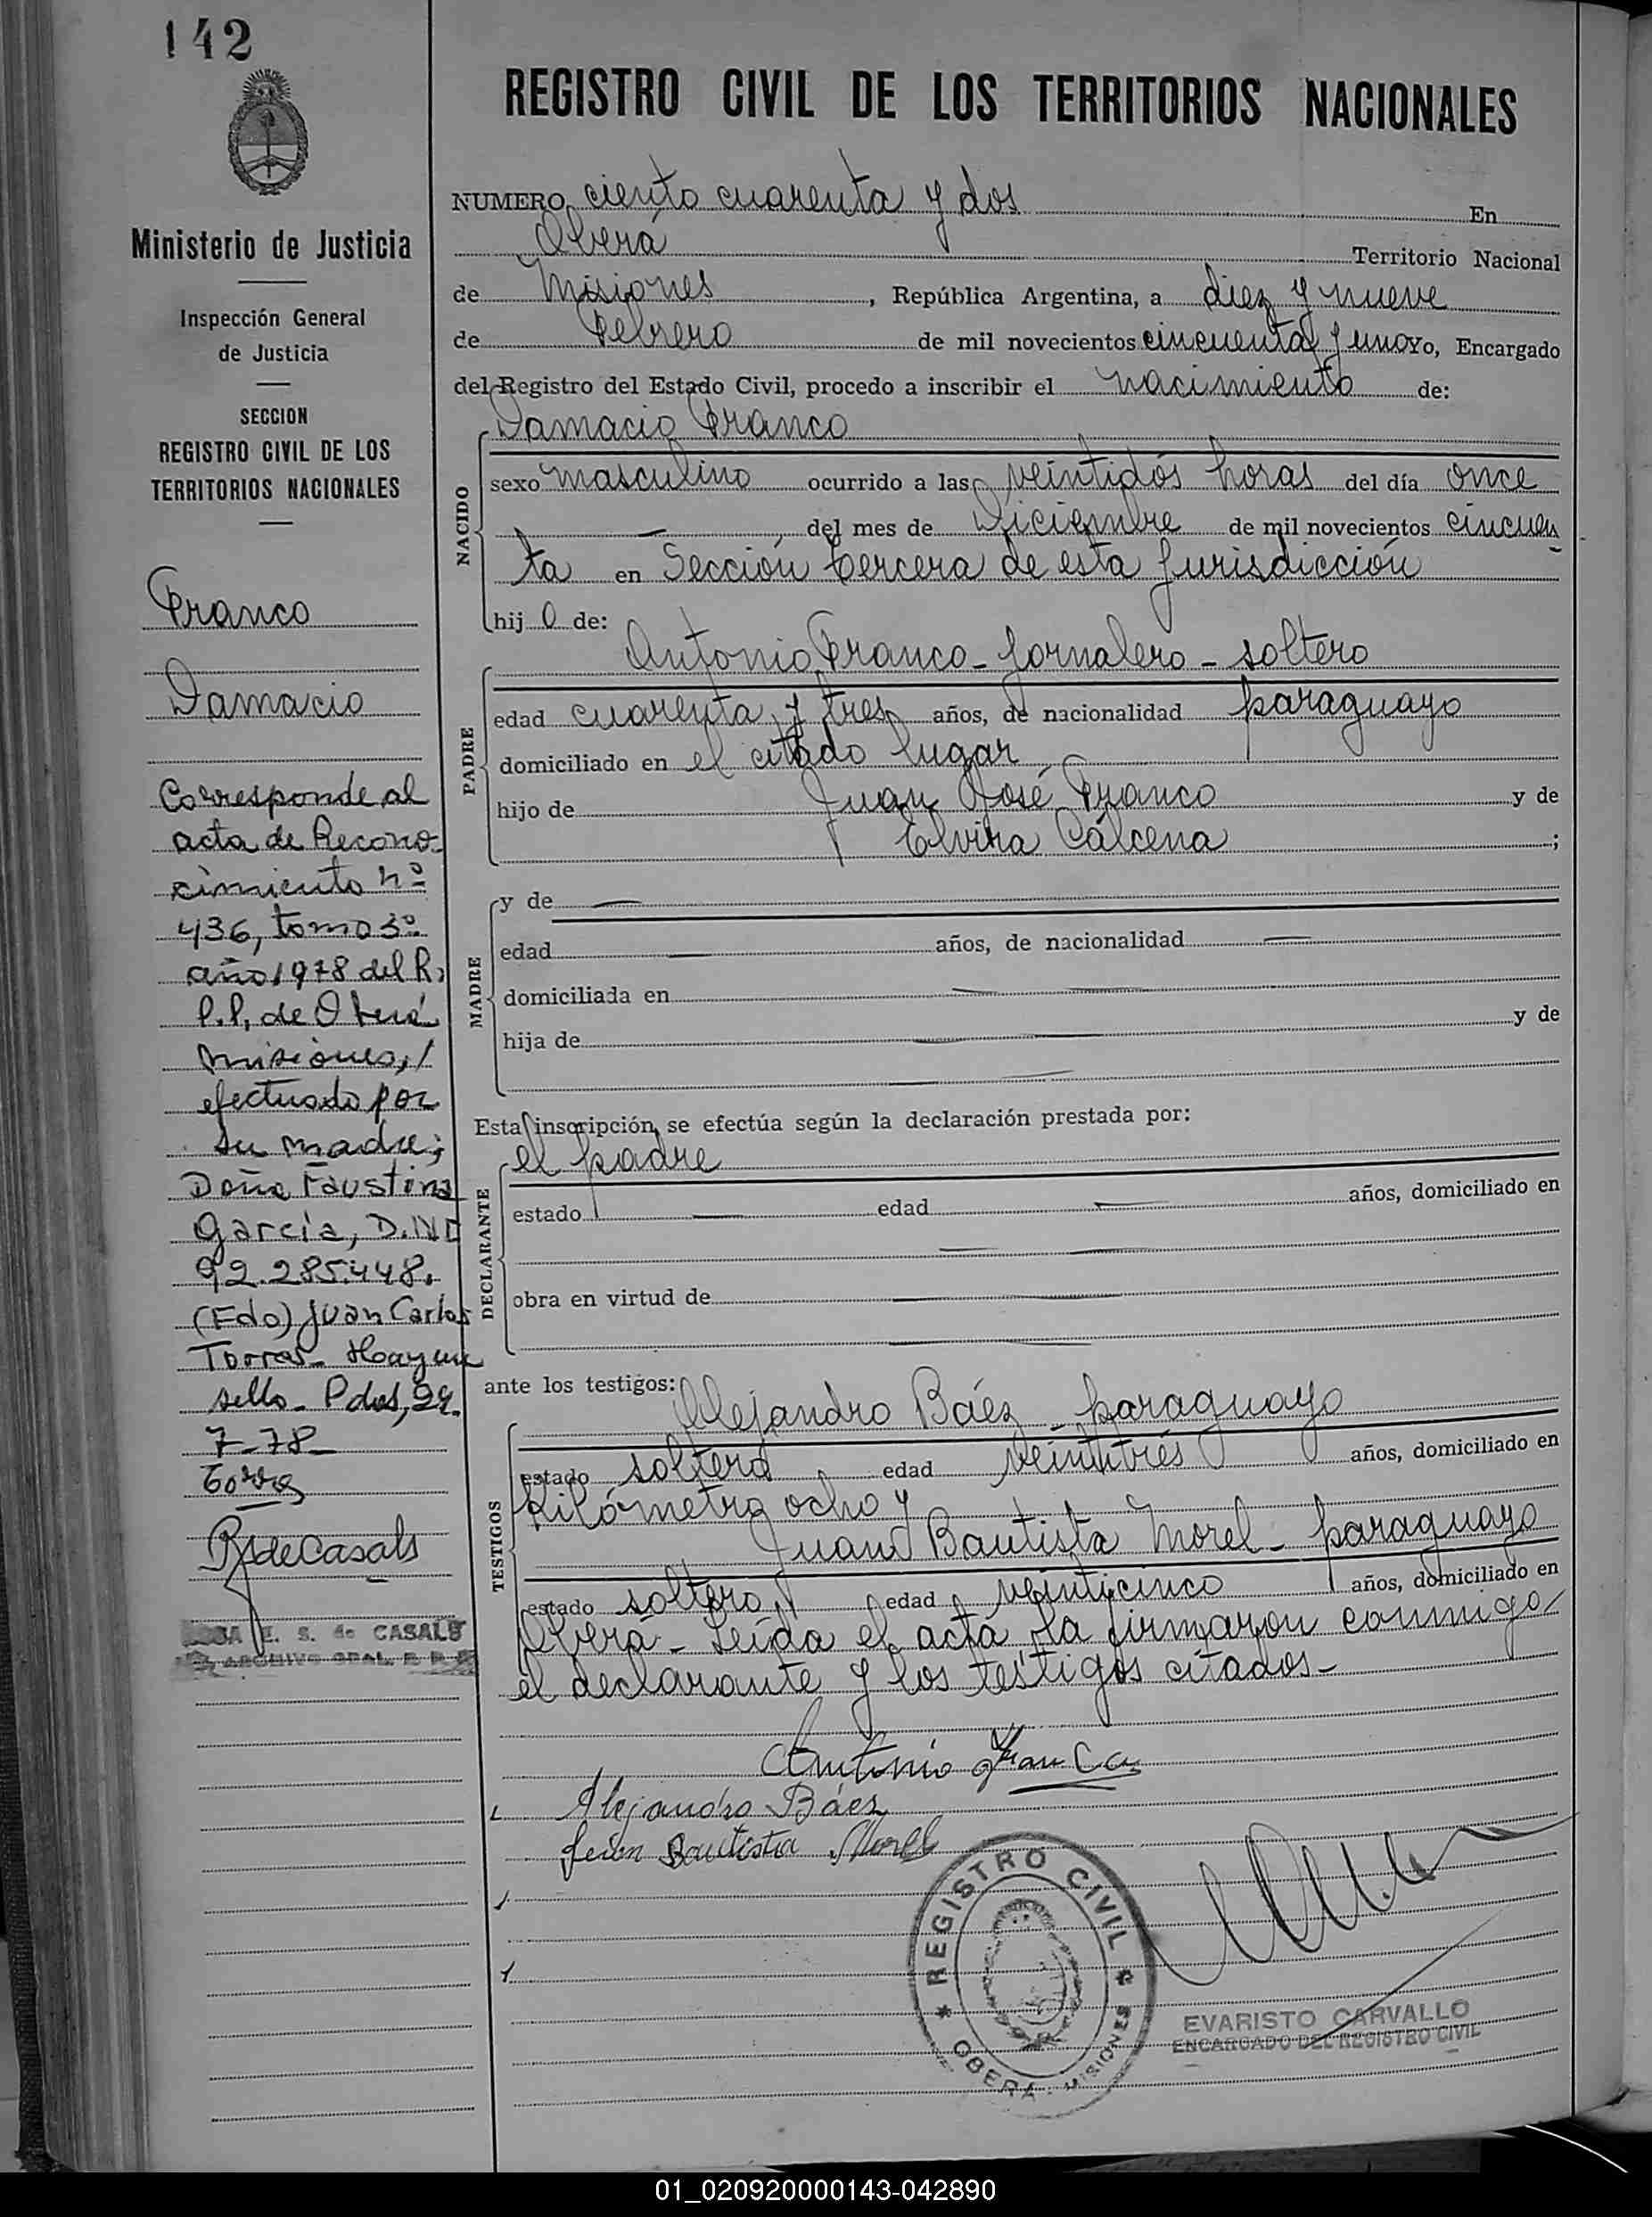 142
REGISTRO CIVIL DE LOS TERRITORIOS NACIONALES
Ministerio de Justicia
Inspección General
de Justicia
SECCION
REGISTRO CIVIL DE LOS
TERRITORIOS NACIONALES
Franco
Damacio
Corresponde al
acta de Recono-
cimiento nº
436, tomo 3º
año 1978 del R.
P.P. de Oberá
Misiones,/
efectuado por
su madre;
Doña Faustina
García, D.NI
92.285.448.
(Fdo) Juan Carlos
Torres- Hay un
sello- Pdas, 24.
7-78-
R S de Casals
E. S. de CASALS
ARCHIVO GRAL. R. P. P.
NUMERO ciento cuarenta y dos En
Oberá Territorio Nacional
de Misiones, República Argentina, a diez y nueve
de Febrero de mil novecientos cincuenta y uno Yo, Encargado
del Registro del Estado Civil, procedo a inscribir el nacimiento de:
NACIDO
Damacio Franco
sexo masculino ocurrido a las veintidós horas del día once
— del mes de Diciembre de mil novecientos cincuen
ta en Sección tercera de esta jurisdicción
hij o de:
PADRE
Antonio Franco- jornalero- soltero
edad cuarenta y tres años, de nacionalidad paraguayo
domiciliado en el citado lugar
hijo de Juan José Franco y de
Elvira Cálcena ;
MADRE
y de —
edad — años, de nacionalidad —
domiciliada en —
hija de — y de
—
Esta inscripción se efectúa según la declaración prestada por:
DECLARANTE
el padre
estado — edad — años, domiciliado en
—
obra en virtud de —
—
ante los testigos:
TESTIGOS
Alejandro Báez- paraguayo
estado soltero edad veintitrés años, domiciliado en
Kilómetro ocho y
Juan Bautista Morel- paraguayo
estado soltero edad veinticinco años, domiciliado en
Oberá- Leída el acta la firmaron conmigo/
el declarante y los testigos citados-
Antonio Franco
Alejandro Báez
Juan Bautista Morel
REGISTRO CIVIL
OBERA - MISIONES
EVARISTO CARVALLO
ENCARGADO DEL REGISTRO CIVIL
01_020920000143-042890